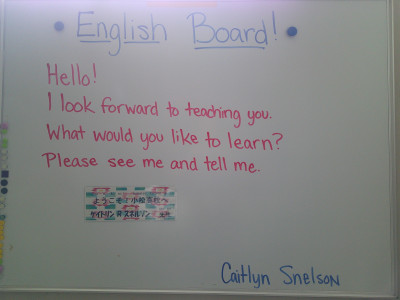 English Board!
Hello!
I look forward to teaching you.
What would you like to learn?
Please see me and tell me.
ようこそ 小松
ケイトリン R スネルソン
Caitlyn Snelson